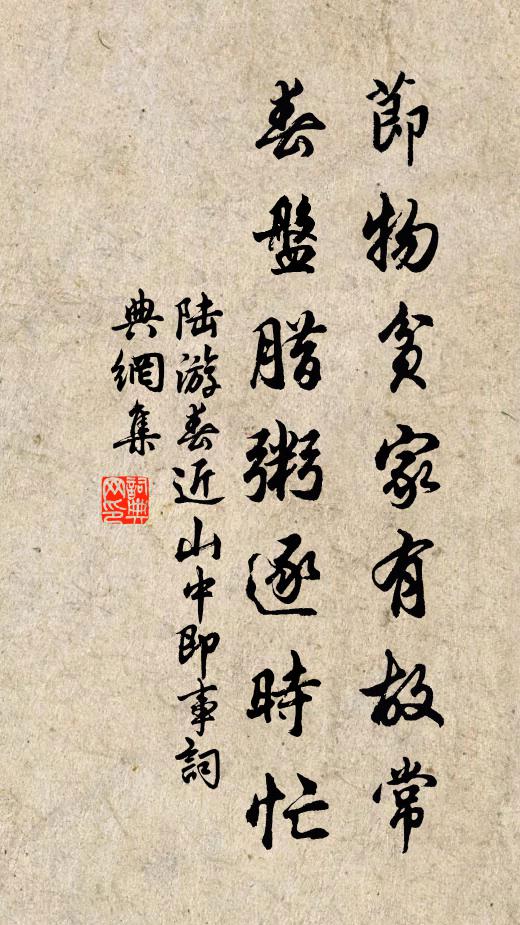 節物貧家有故常
春盤腊粥逐時忙
陆游春近山中即事詞
典網集
詞典
网印